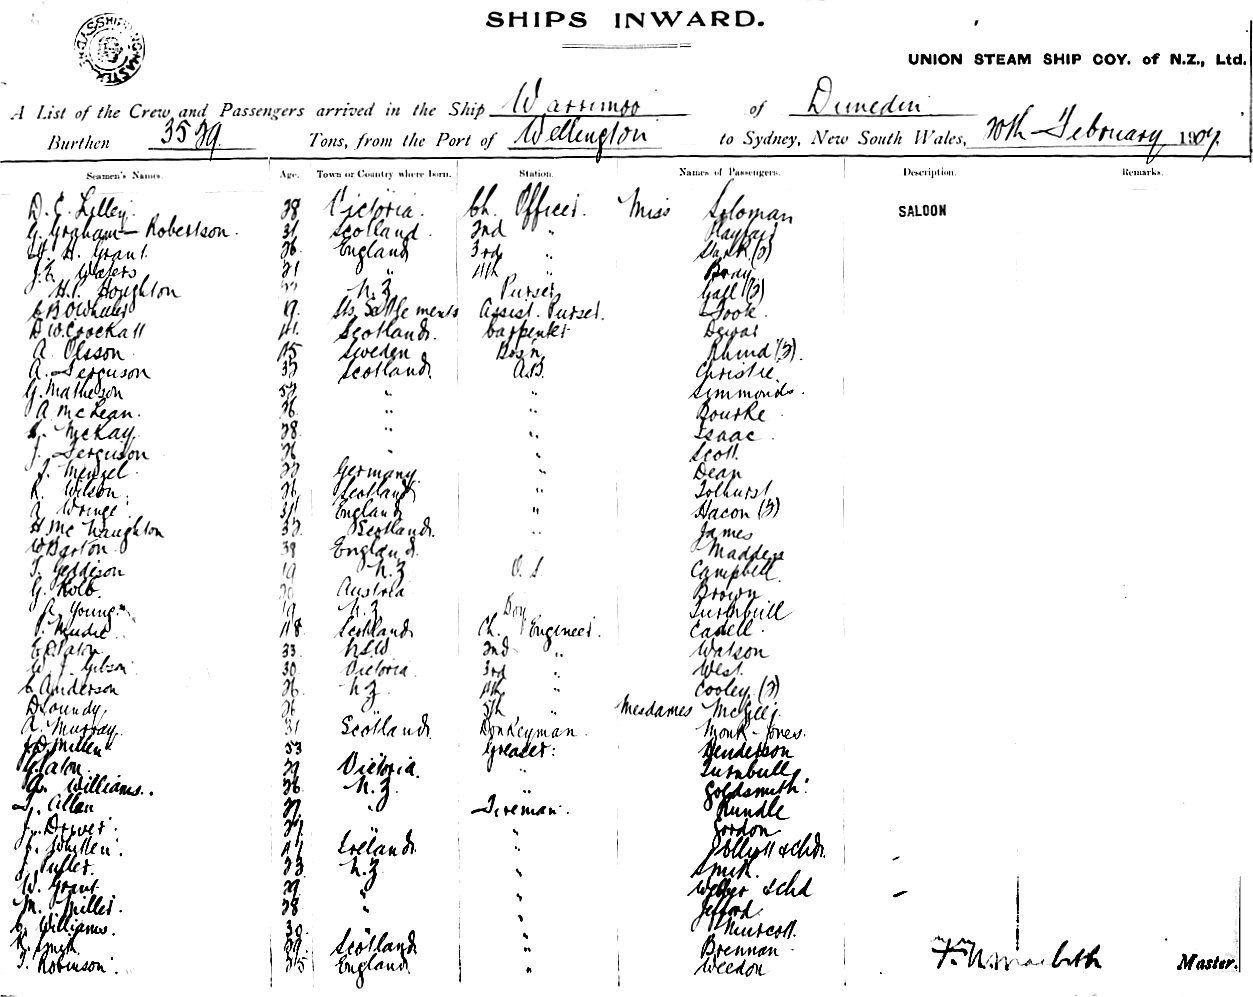 SHIPS INWARD.
UNION STEAM SHIP COY. of N.Z., Ltd.
A List of the Crew and Passengers arrived in the Ship Warrimoo of Dunedin
Burthen 3529 Tons, from the Port of Wellington to Sydney, New South Wales, 20th February 1907.
Seamen's Names. Age. Town or Country where born. Station. Names of Passengers. Description. Remarks.
D. E. Lilley. 38 Victoria. Ch. Officer. Miss Soloman SALOON
G. Graham-Robertson. 31 Scotland. 2nd " Playfair
H. Grant. 26 England 3rd " Stark (3)
J. E. Waters 21 " 4th " Bray
H. P. Houghton N.Z Purser Gall (3)
19. Sts Settlements Assist. Purser. Took.
D. W. Crockatt 41. Scotland. Carpenter Dewar
A. Olsson. 45 Sweden Bos'n Rhind (3).
A. Ferguson 37 Scotland. A.B. Christie.
G. Matheson 57 " " Simmonds.
A. McLean. 36. " " Bourke
McKay. 28. " " Isaac.
J. Ferguson 26 " " Scott.
J. Menzel. 27 Germany. " Dean
R. Wilson. 26 Scotland " Tolhurst
A. Wringe. 34 England " Hacon (3)
H. McNaughton 37. Scotland. " James
W Barton. 38 England. Madders
T. Geddison 19 N.Z O.S Campbell.
G. Kolb. 20 Austria Brown
A. Young. 19 N.Z. Boy Turnbull
P. Mudie. 48. Scotland Ch. Engineer. Cadell.
E. Eaton. 33. N.S.W 2nd " Watson
W. J. Gibson 30 Victoria. 3rd " West.
C. Anderson 26 N.Z. 4th. " Cooley (3)
D. Loundy. 26 " 5th " Mesdames McGill.
A. Murray. 31 Scotland. Donkeyman. Monk-Jones.
Millen 53 Greaser: Henderson
Eaton. 29 Victoria. " Turnbull
Williams.. 26. N.Z. " Goldsmith.
T. Allan 27 " Fireman. Rundle
J. Driver. 27 " " Gordon
Whitten. 47 Ireland. " Elliott & chdn.
J. Fuller. 23 N.Z. " Smith.
W. Grant. 29 " " Webber & chd
M. Miller. 28 " " Jefford.
C. Williams. 30. " Murcott.
R. Smith. 29 Scotland " Brennan.
T. Robinson. 25 England. " Weedon
Master.